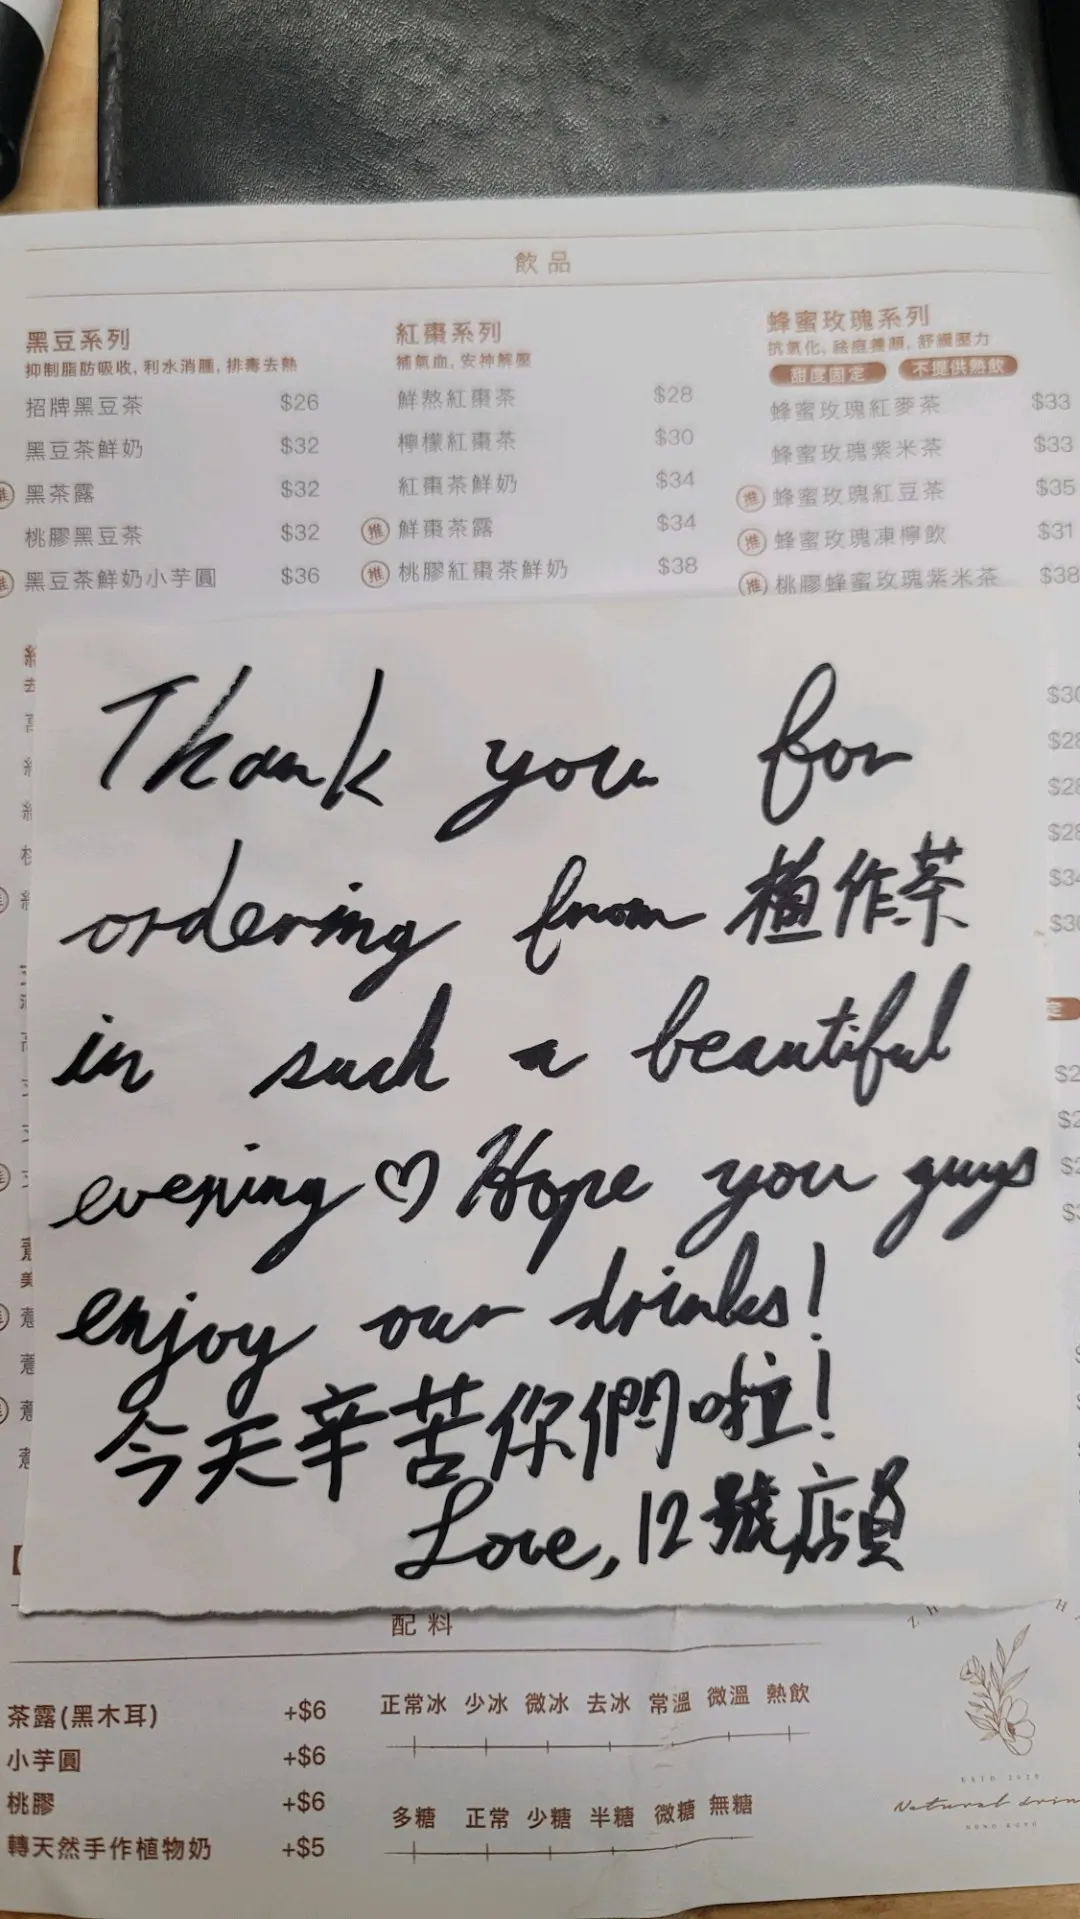 飲品
黑豆系列
抑制脂肪吸收, 利水消腫, 排毒去熱
招牌黑豆茶 $26
黑豆茶鮮奶 $32
推 黑茶露 $32
桃膠黑豆茶 $32
推 黑豆茶鮮奶小芋圓 $36
紅棗系列
補氣血, 安神解壓
鮮熬紅棗茶 $28
檸檬紅棗茶 $30
紅棗茶鮮奶 $34
推 鮮棗茶露 $34
推 桃膠紅棗茶鮮奶 $38
蜂蜜玫瑰系列
抗氧化, 祛痘養顏, 舒緩壓力
甜度固定 不提供熱飲
蜂蜜玫瑰紅麥茶 $33
蜂蜜玫瑰紫米茶 $33
推 蜂蜜玫瑰紅豆茶 $35
推 蜂蜜玫瑰凍檸飲 $31
推 桃膠蜂蜜玫瑰紫米茶 $38
Thank you for
ordering from 植作茶
in such a beautiful
evening ♡ Hope you guys
enjoy our drinks!
今天辛苦你們啦!
Love, 12號店員
配料
茶露(黑木耳) +$6
小芋圓 +$6
桃膠 +$6
轉天然手作植物奶 +$5
正常冰 少冰 微冰 去冰 常溫 微溫 熱飲
多糖 正常 少糖 半糖 微糖 無糖
Natural drin
HONG KONG